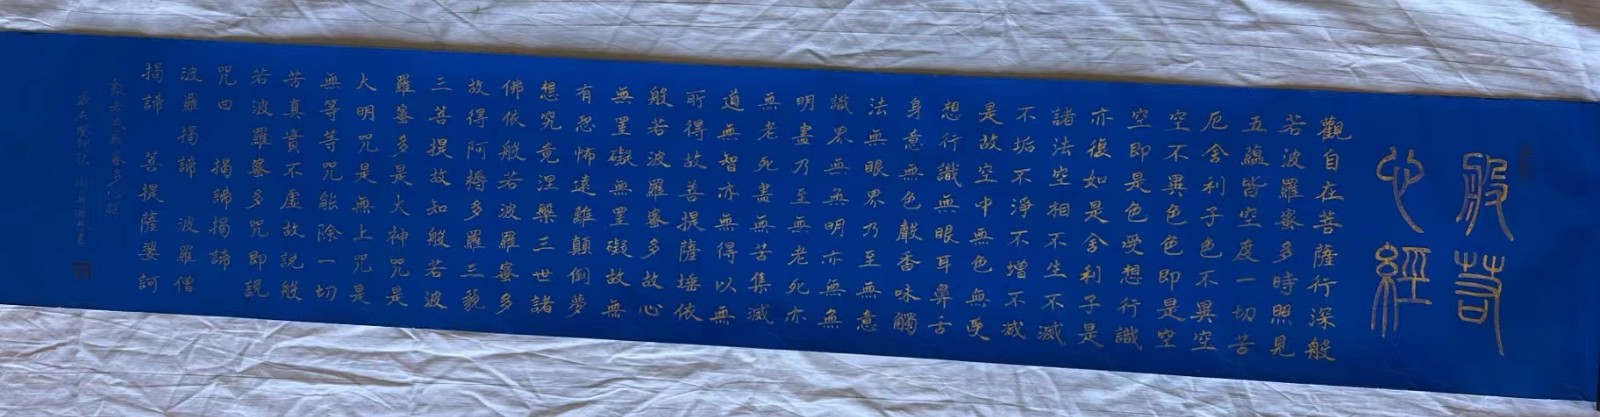 般若
心經
觀自在菩薩行深般
若波羅蜜多時照見
五蘊皆空度一切苦
厄舍利子色不異空
空不異色色即是空
空即是色受想行識
亦復如是舍利子是
諸法空相不生不滅
不垢不淨不增不減
是故空中無色無受
想行識無眼耳鼻舌
身意無色聲香味觸
法無眼界乃至無意
識界無無明亦無無
明盡乃至無老死亦
無老死盡無苦集滅
道無智亦無得以無
所得故菩提薩埵依
般若波羅蜜多故心
無罣礙無罣礙故無
有恐怖遠離顛倒夢
想究竟涅槃三世諸
佛依般若波羅蜜多
故得阿耨多羅三藐
三菩提故知般若波
羅蜜多是大神咒是
大明咒是無上咒是
無等等咒能除一切
苦真實不虛故說般
若波羅蜜多咒即說
咒曰 揭諦揭諦
波羅揭諦 波羅僧
揭諦 菩提薩婆訶
般若波羅蜜多心經